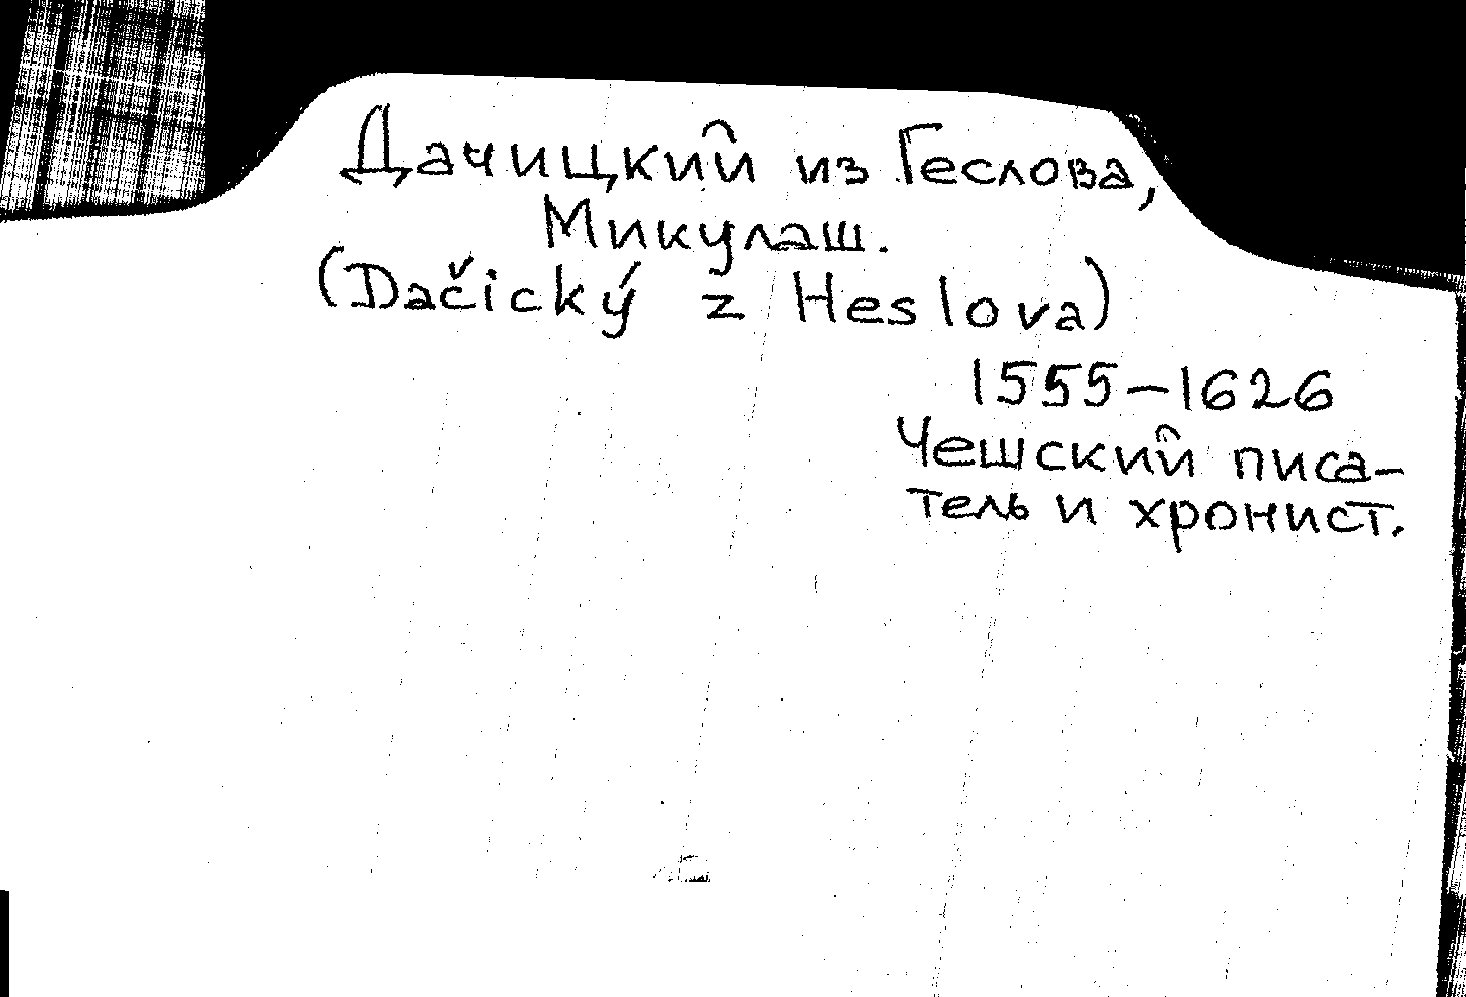 Дачицкий из Геслова,
Микулаш.
(Dačický z Heslova)
1555-1626
Чешский писа-
тель и хронист.